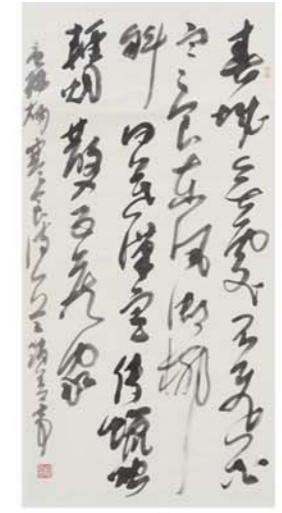 春城無處不飛花
寒食東風御柳
斜日暮漢宮傳蠟燭
輕烟散入五侯家
唐韓翃寒食詩一首